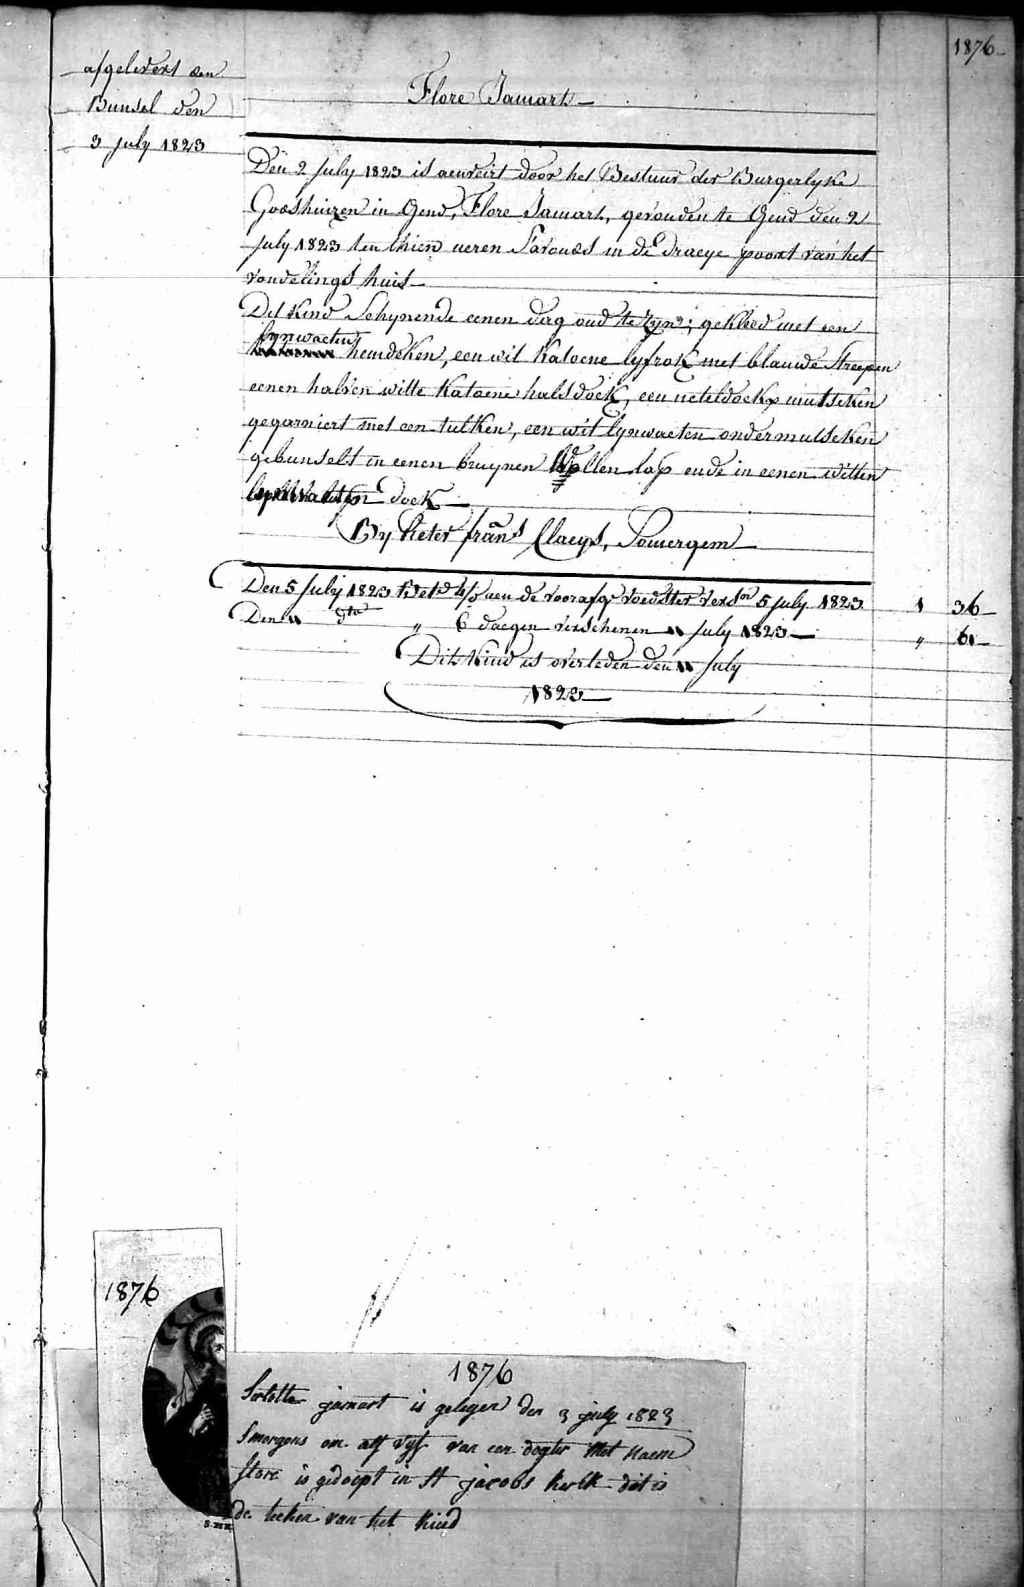 1876
afgelevert aen
Bunsel den
3 july 1823
Flore Jamart
Den 2 july 1823 is aenveirt door het Bestuur der Burgerlyke
Godshuizen in Gend, Flore Jamart, gevonden te Gend den 2
july 1823 ten thien ueren S'avonds in de Draeye poort van het
vondelings huis
Dit Kind Schynende eenen dag oud te zyn; gekleed met een
lynwaeten
hemdeken, een wit Katoene lyfrok met blauwe Streepen
eenen halven witte Katoene halsdoek, een neteldoekx mutseken
gegarniert met een tulken, een wit lynwaeten ondermutseken
gebunselt in eenen bruynen Wollen lap ende in eenen witten
doek
By Pieter frans Claeys, Somergem
Den 5 july 1823 aen de voorafge voedster 5 july 1823 1 36
Den 11 dto " 6 daegen verschenen 11 july 1823 " 61
Dit Kind is overleden den 11 july
1823
1876
1876
jamart is gelegen den 3 july 1823
Smorgens om alf vyf van een dogter Met Naem
flore is gedoept in St jacobs kerk dit is
de teeken van het Kind